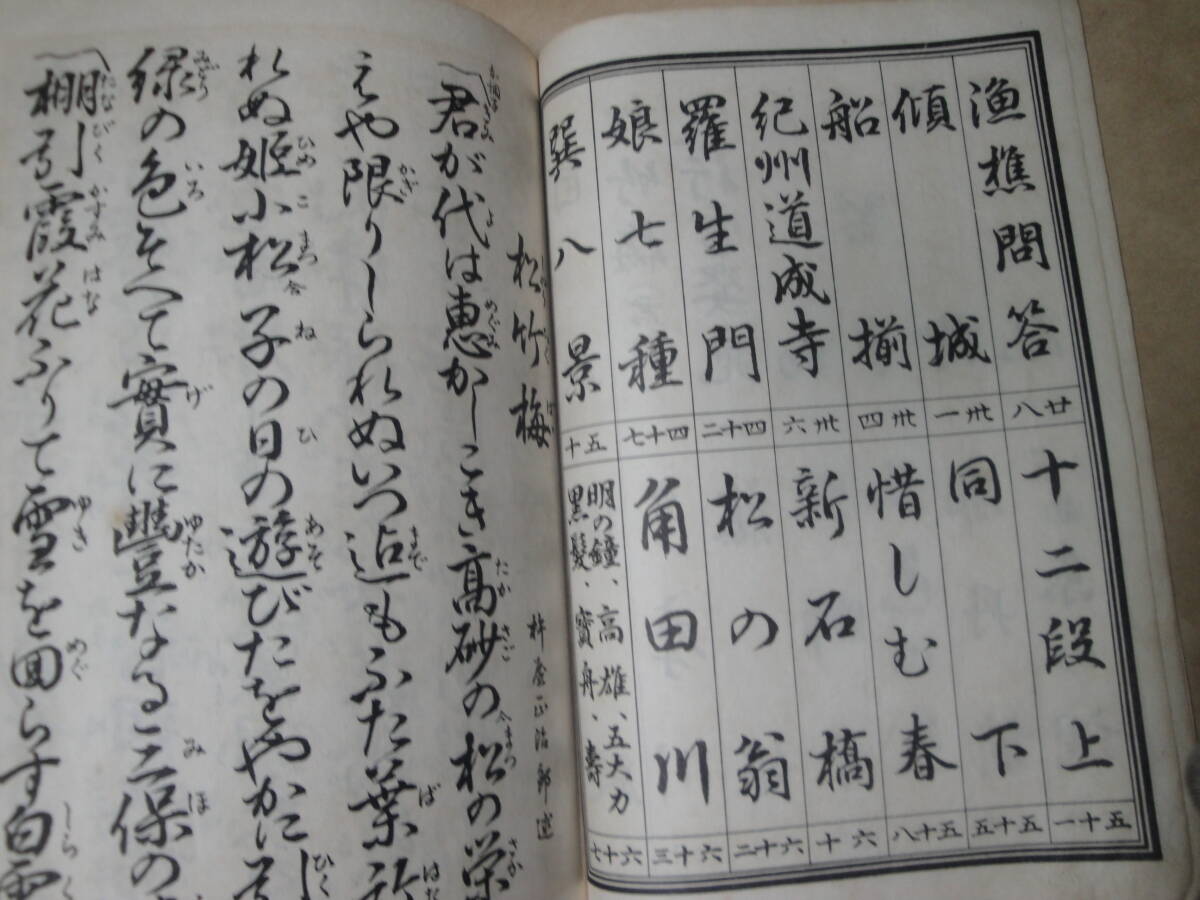 漁樵問答
傾城
船揃
紀州道成寺
羅生門
娘七種
巽八景
廿八
卅一
卅四
卅六
四十二
四十七
五十
十二段上
同下
惜しむ春
新石橋
松の翁
角田川
明の鐘、高雄、五大力
黒髪、寳舟、壽
五十一
五十五
五十八
六十
六十二
六十三
六十七
松竹梅
杵屋正治郎述
君が代は惠かしこき高砂の松の栄
えや限りしられぬいつ迠もふた葉
れぬ姫小松子の日の遊びたをやかに
緑の色そへて實に豐なる三保の
棚引霞花ふりて雪を回らす白雲